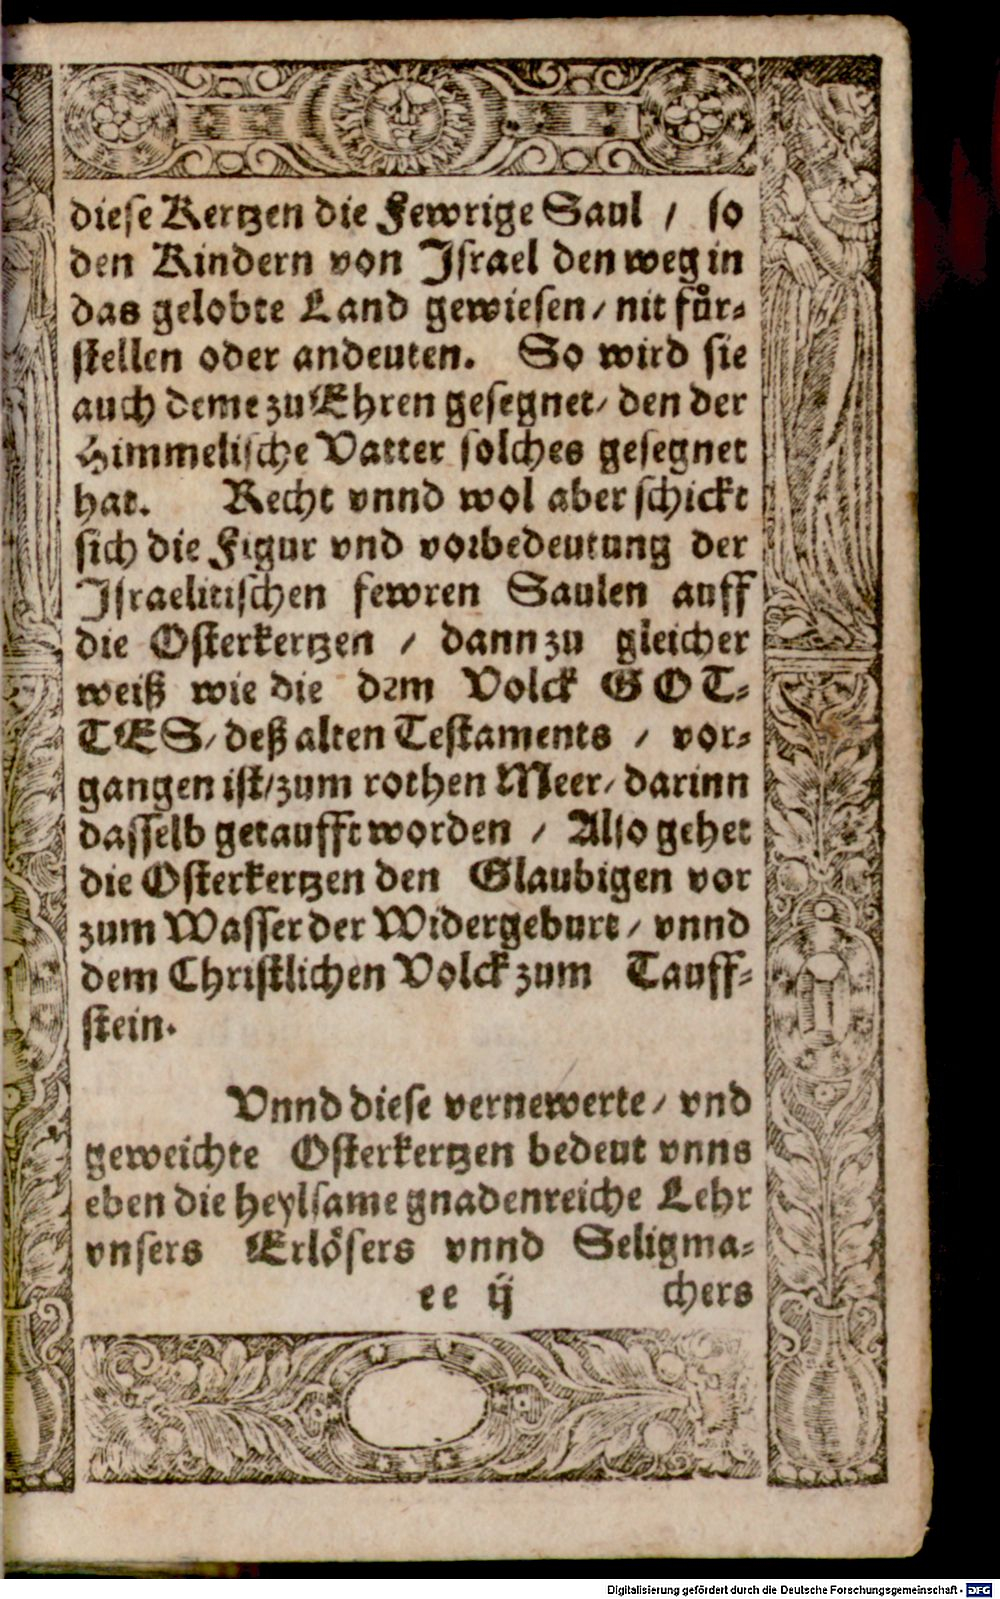 diese Kertzen die Fewrige Saul / so
den Kindern von Israel den weg in
das gelobte Land gewiesen / nit fůr-
stellen oder andeuten. So wird sie
auch deme zu Ehren gesegnet / den der
Himmelische Vatter solches gesegnet
hat. Recht vnnd wol aber schickt
sich die Figur vnd vorbedeutung der
Israelitischen fewren Saulen auff
die Osterkertzen / dann zu gleicher
weiß wie die dem Volck GOT-
TES / deß alten Testaments / vor-
gangen ist / zum rothen Meer / darinn
dasselb getaufft worden / Also gehet
die Osterkertzen den Glaubigen vor
zum Wasser der Widergeburt / vnnd
dem Christlichen Volck zum Tauff-
stein.
Vnnd diese vernewerte / vnd
geweichte Osterkertzen bedeut vnns
eben die heylsame gnadenreiche Lehr
vnsers Erlösers vnnd Seligma-
ee ij chers
Digitalisierung gefördert durch die Deutsche Forschungsgemeinschaft - DFG